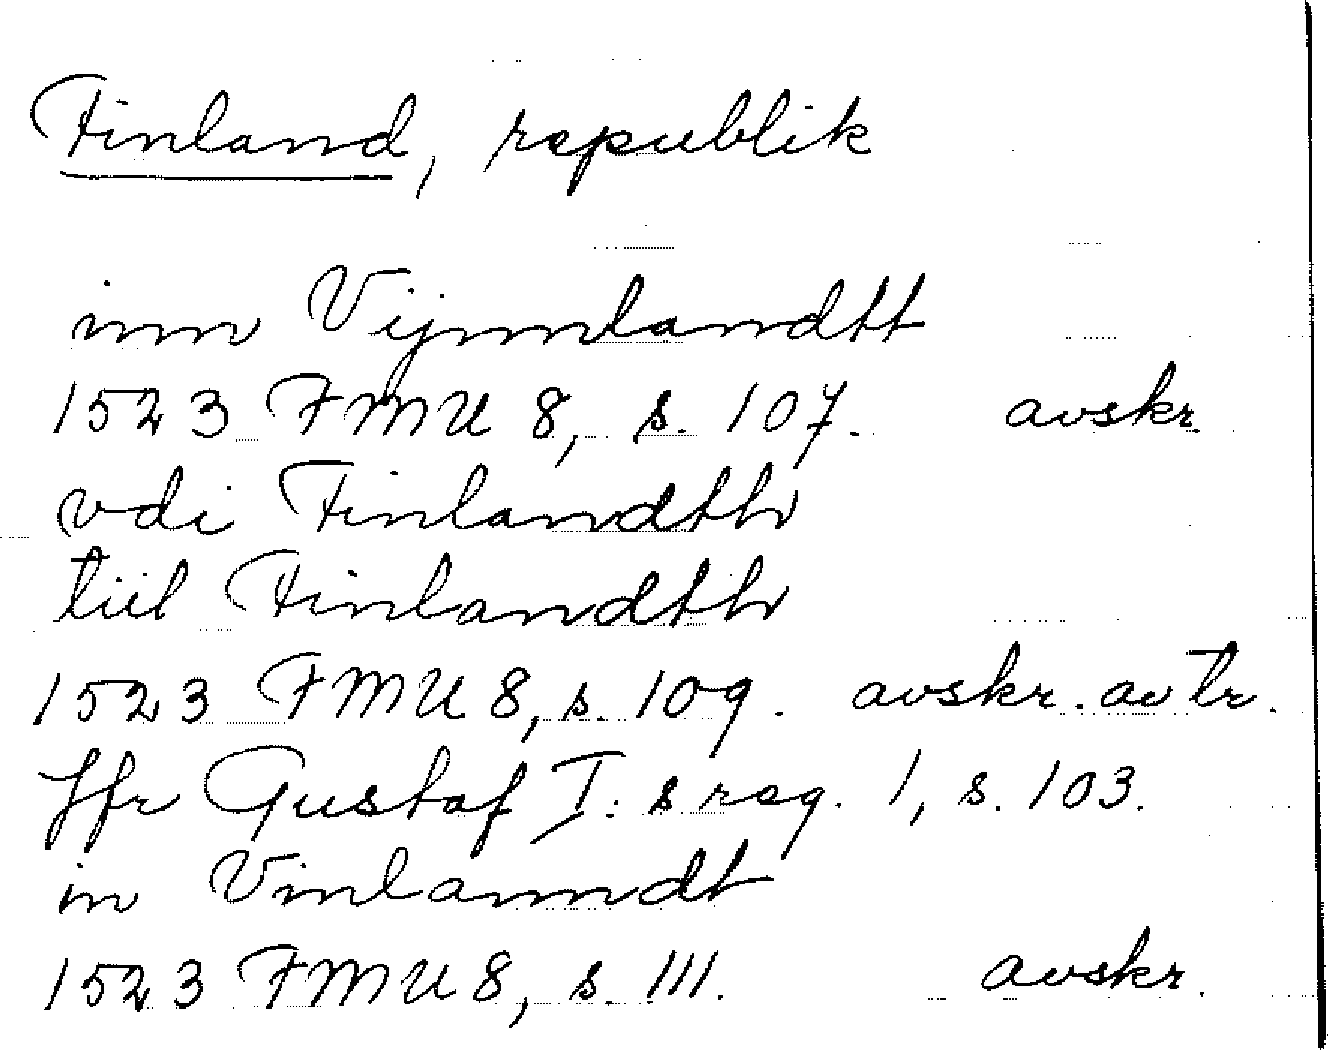 Finland, republik
inn Vijnnlandtt
1523 FMU 8, s. 107. avskr.
vdi Finlandth
tiil Finlandth
1523 FMU 8, s. 109. avskr. av tr.
Jfr Gustaf I:s reg. 1, s. 103.
in Vinlanndt
1523 FMU 8, s. 111. avskr.